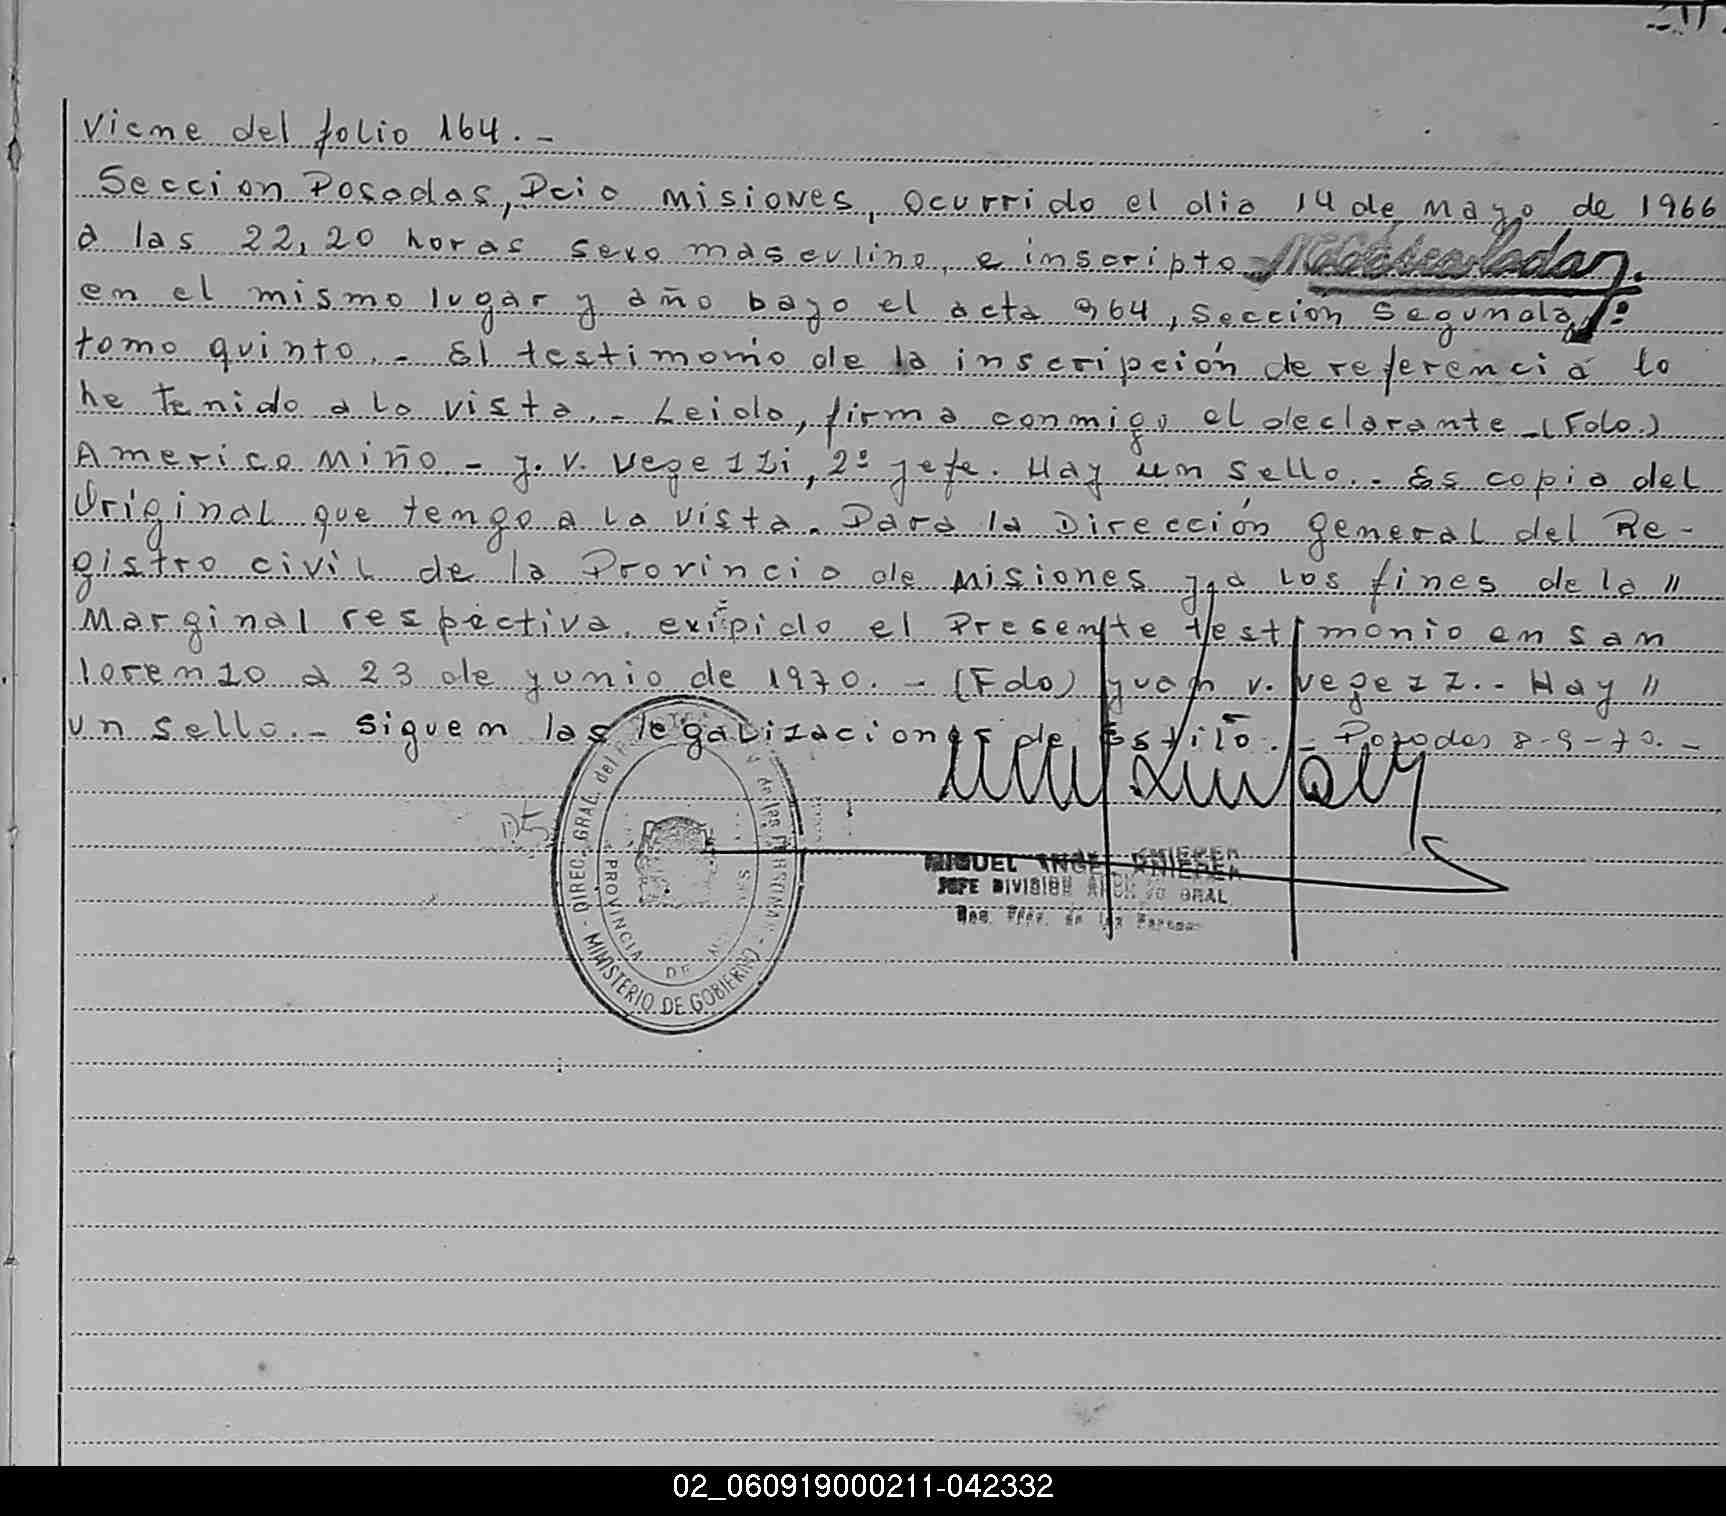 Viene del folio 164. -
Seccion Posadas, Pcia Misiones, Ocurrido el dia 14 de Mayo de 1966
a las 22,20 horas sexo masculino, e inscripto
en el mismo lugar y año bajo el acta 964, Sección Segunda,
tomo quinto. - El testimonio de la inscripción de referencia lo
he tenido a la vista. - Leido, firma conmigo el declarante - (Fdo.)
Americo Miño - J. V. Vegezzi, 2º Jefe. Hay un sello. - Es copia del
Original que tengo a la vista. Para la Dirección General del Re-
gistro civil de la Provincia de Misiones y a los fines de la "
Marginal respectiva, exipido el Presente testimonio en san
lorenzo a 23 de junio de 1970. - (Fdo) Juan V. Vegezz. - Hay "
un sello. - Siguen las legalizaciones de Estilo. - Posadas 8-9-70. -
DIREC. GRAL. del
de las PERSONAS
PROVINCIA DE
MINISTERIO DE GOBIERNO
MIGUEL ANGEL
JEFE DIVISION ARCHIVO GRAL
02_060919000211-042332